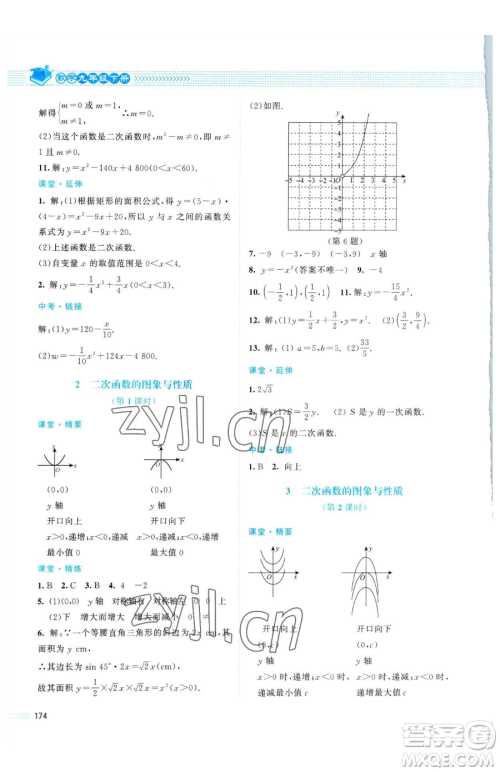 数学九年级下册
解得{m=0或m=1, m≠1, ∴m=0.
(2)当这个函数是二次函数时,m²-m≠0,
∴m≠0且m≠1.
11. 解:y=x²-140x+4 800(0<x<60).
课堂·延伸
1. 解:(1)根据矩形的面积公式,得y=(5-x)·
(4-x)=x²-9x+20,所以y与x之间的函数
关系式为y=x²-9x+20.
(2)上述函数是二次函数.
(3)自变量x的取值范围是0<x<4.
2. 解:y=-1/4x²+3/4x(0<x<3).
中考·链接
解:(1)y=120-x/10.
(2)w=-1/10x²+124x-4 800.
2 二次函数的图象与性质
(第1课时)
课堂·精要
y
O x
y
O x
(0,0) (0,0)
y轴 y轴
开口向上 开口向下
x>0,递增;x<0,递减 x>0,递减;x<0,递增
最小值0 最大值0
课堂·精练
1. B 2. C 3. B 4. 4 -2
5. (1)(0,0) y轴 对称轴右 对称轴左 0 0
(2)下 增大而增大 增大而减小 0
6. 解:∵一个等腰直角三角形的斜边为2x cm,
∴其边长为sin 45°·2x=√2x(cm),
故其面积y=1/2×√2x×√2x=x²(x>0).
174
(2)如图.
y
5
4
3
2
1
-5 -4 -3 -2 -1 O 1 2 3 4 5 x
-1
-2
-3
-4
(第6题)
7. -9 (-3,-9) (3,-9) x轴
8. y=-x²(答案不唯一) 9. -4
10. (-1/2,1),(1/2,1) 11. 解:k=-15/4.
12. 解:(1)y=1/2x+3/2,y=x². (2)(3/2,9/4).
13. 解:(1)a=5,b=5. (2)33/5.
课堂·延伸
1. 2√3
2. 解:(1)S=3/2y. (2)S是y的一次函数.
(3)S是x的二次函数.
中考·链接
1. B 2. 向上
3 二次函数的图象与性质
(第2课时)
课堂·精要
y
O x
y
O x
开口向上 开口向下
(0,c) (0,c)
y轴 y轴
x>0时,递增;x<0时, x>0时,递减;x<0时,
递减最小值c 递增最大值c
zyjl.cn
zyjl.cn